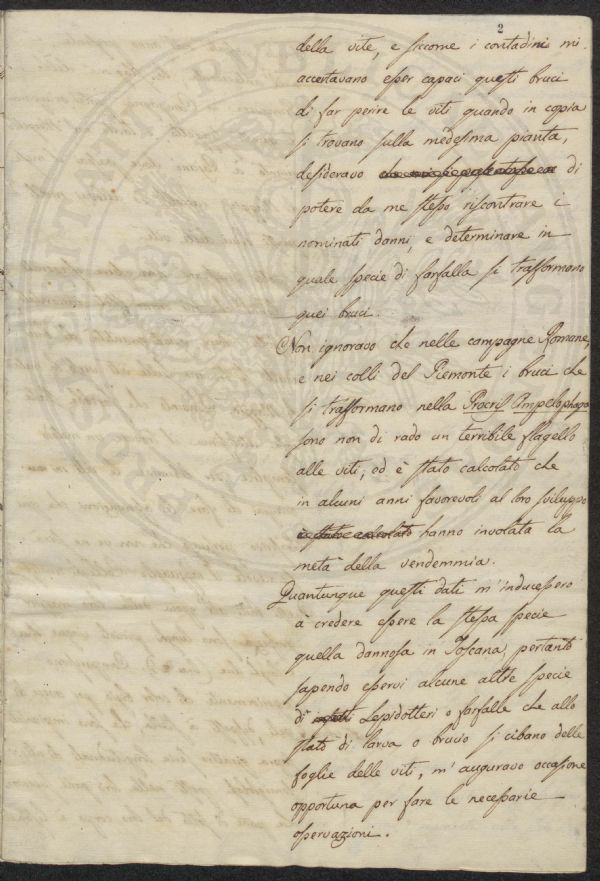 2
della vite, e siccome i contadini mi
accertavano esser capaci questi bruci
di far perire le viti quando in copia
si trovano sulla medesima pianta,
desideravo di
potere da me stesso riscontrare i
nominati danni, e determinare in
quale specie di farfalla si trasformano
quei bruci.
Non ignoravo che nelle campagne Romane,
e nei colli del Piemonte i bruci che
si trasformano nella Procris Ampelophaga
sono non di rado un terribile flagello
alle viti; ed è stato calcolato che
in alcuni anni favorevoli al loro sviluppo
è stato calcolato hanno involata la
metà della vendemmia.
Quantunque questi dati m'inducessero
à credere essere la stessa specie
quella dannosa in Toscana, pertanto
sapendo esservi alcune altre specie
di Lepidotteri o farfalle che allo
stato di larva o brucio si cibano delle
foglie delle viti, m'auguravo occasione
opportuna per fare le necessarie
osservazioni.